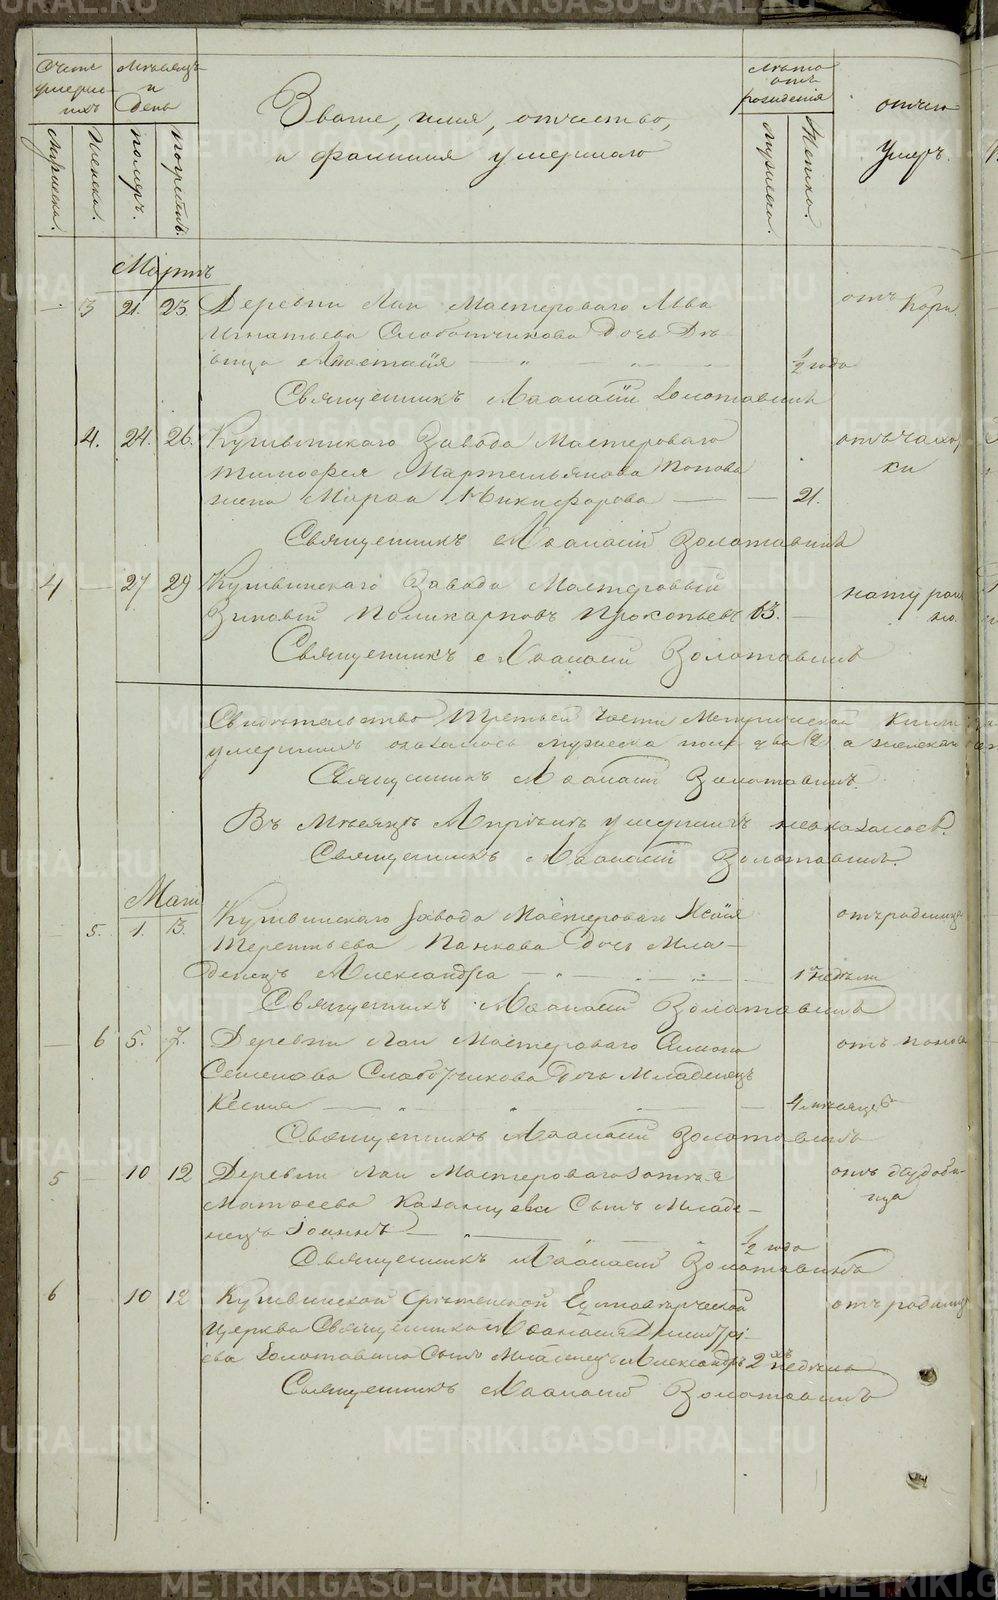 Счетъ умершихъ
Мѣсяцъ и день
Званіе, имя, отчество, и фамилія умершаго
Лѣта отъ рожденія
отчего умеръ.
Мужеска.
Женска.
помер.
погребен.
Мужеска.
Женска.
Мартъ
— 3 21. 23. Деревни Лаи Мастероваго Льва
Игнатьева Слободчикова дочь Дѣ-
вица Анастасія — " — 1/2 года
отъ кори.
Священникъ Аѳанасій Золотавинъ
4. 24. 26. Кушвинскаго Завода Мастероваго
Тимофея Мартемьянова Попова
жена Марѳа Никифорова — — 21.
отъ чахот
ки
Священникъ Аѳанасій Золотавинъ
4 — 27 29 Кушвинскаго Завода Мастеровый
Зиновій Поликарповъ Прокопьевъ 63. —
натураль
но.
Священникъ Аѳанасій Золотавинъ
Свидѣтельство Третьей части Метрической Книги
умершихъ оказалось мужеска пола два (2) а женска
Священникъ Аѳанасій Золотавинъ.
Въ Мѣсяцѣ Апрѣлѣ умершихъ неоказалось.
Священникъ Аѳанасій Золотавинъ.
Маій
— 5. 1. 3. Кушвинскаго Завода Мастероваго Исаія
Терентьева Панкова дочь Мла-
денецъ Александра — " — 1 недѣли
отъ родимца
Священникъ Аѳанасій Золотавинъ
— 6 5. 7. Деревни Лаи Мастероваго Симона
Семенова Слободчикова дочь Младенецъ
Ксенія — " — 4 мѣсяцевъ
отъ поноса
Священникъ Аѳанасій Золотавинъ
5 — 10 12 Деревни Лаи Мастероваго
Матвеева Казанцева Сынъ Младе-
нецъ Іоаннъ — " — 1/2 года
Священникъ Аѳанасій Золотавинъ
6 — 10 12 Кушвинской Срѣтенской Единоверческой
церкви Священника Аѳанасія Димитрі-
ева Золотавина Сынъ Младенецъ Александръ 2хъ недѣль
отъ родимца
Священникъ Аѳанасій Золотавинъ
METRIKI.GASO-URAL.RU